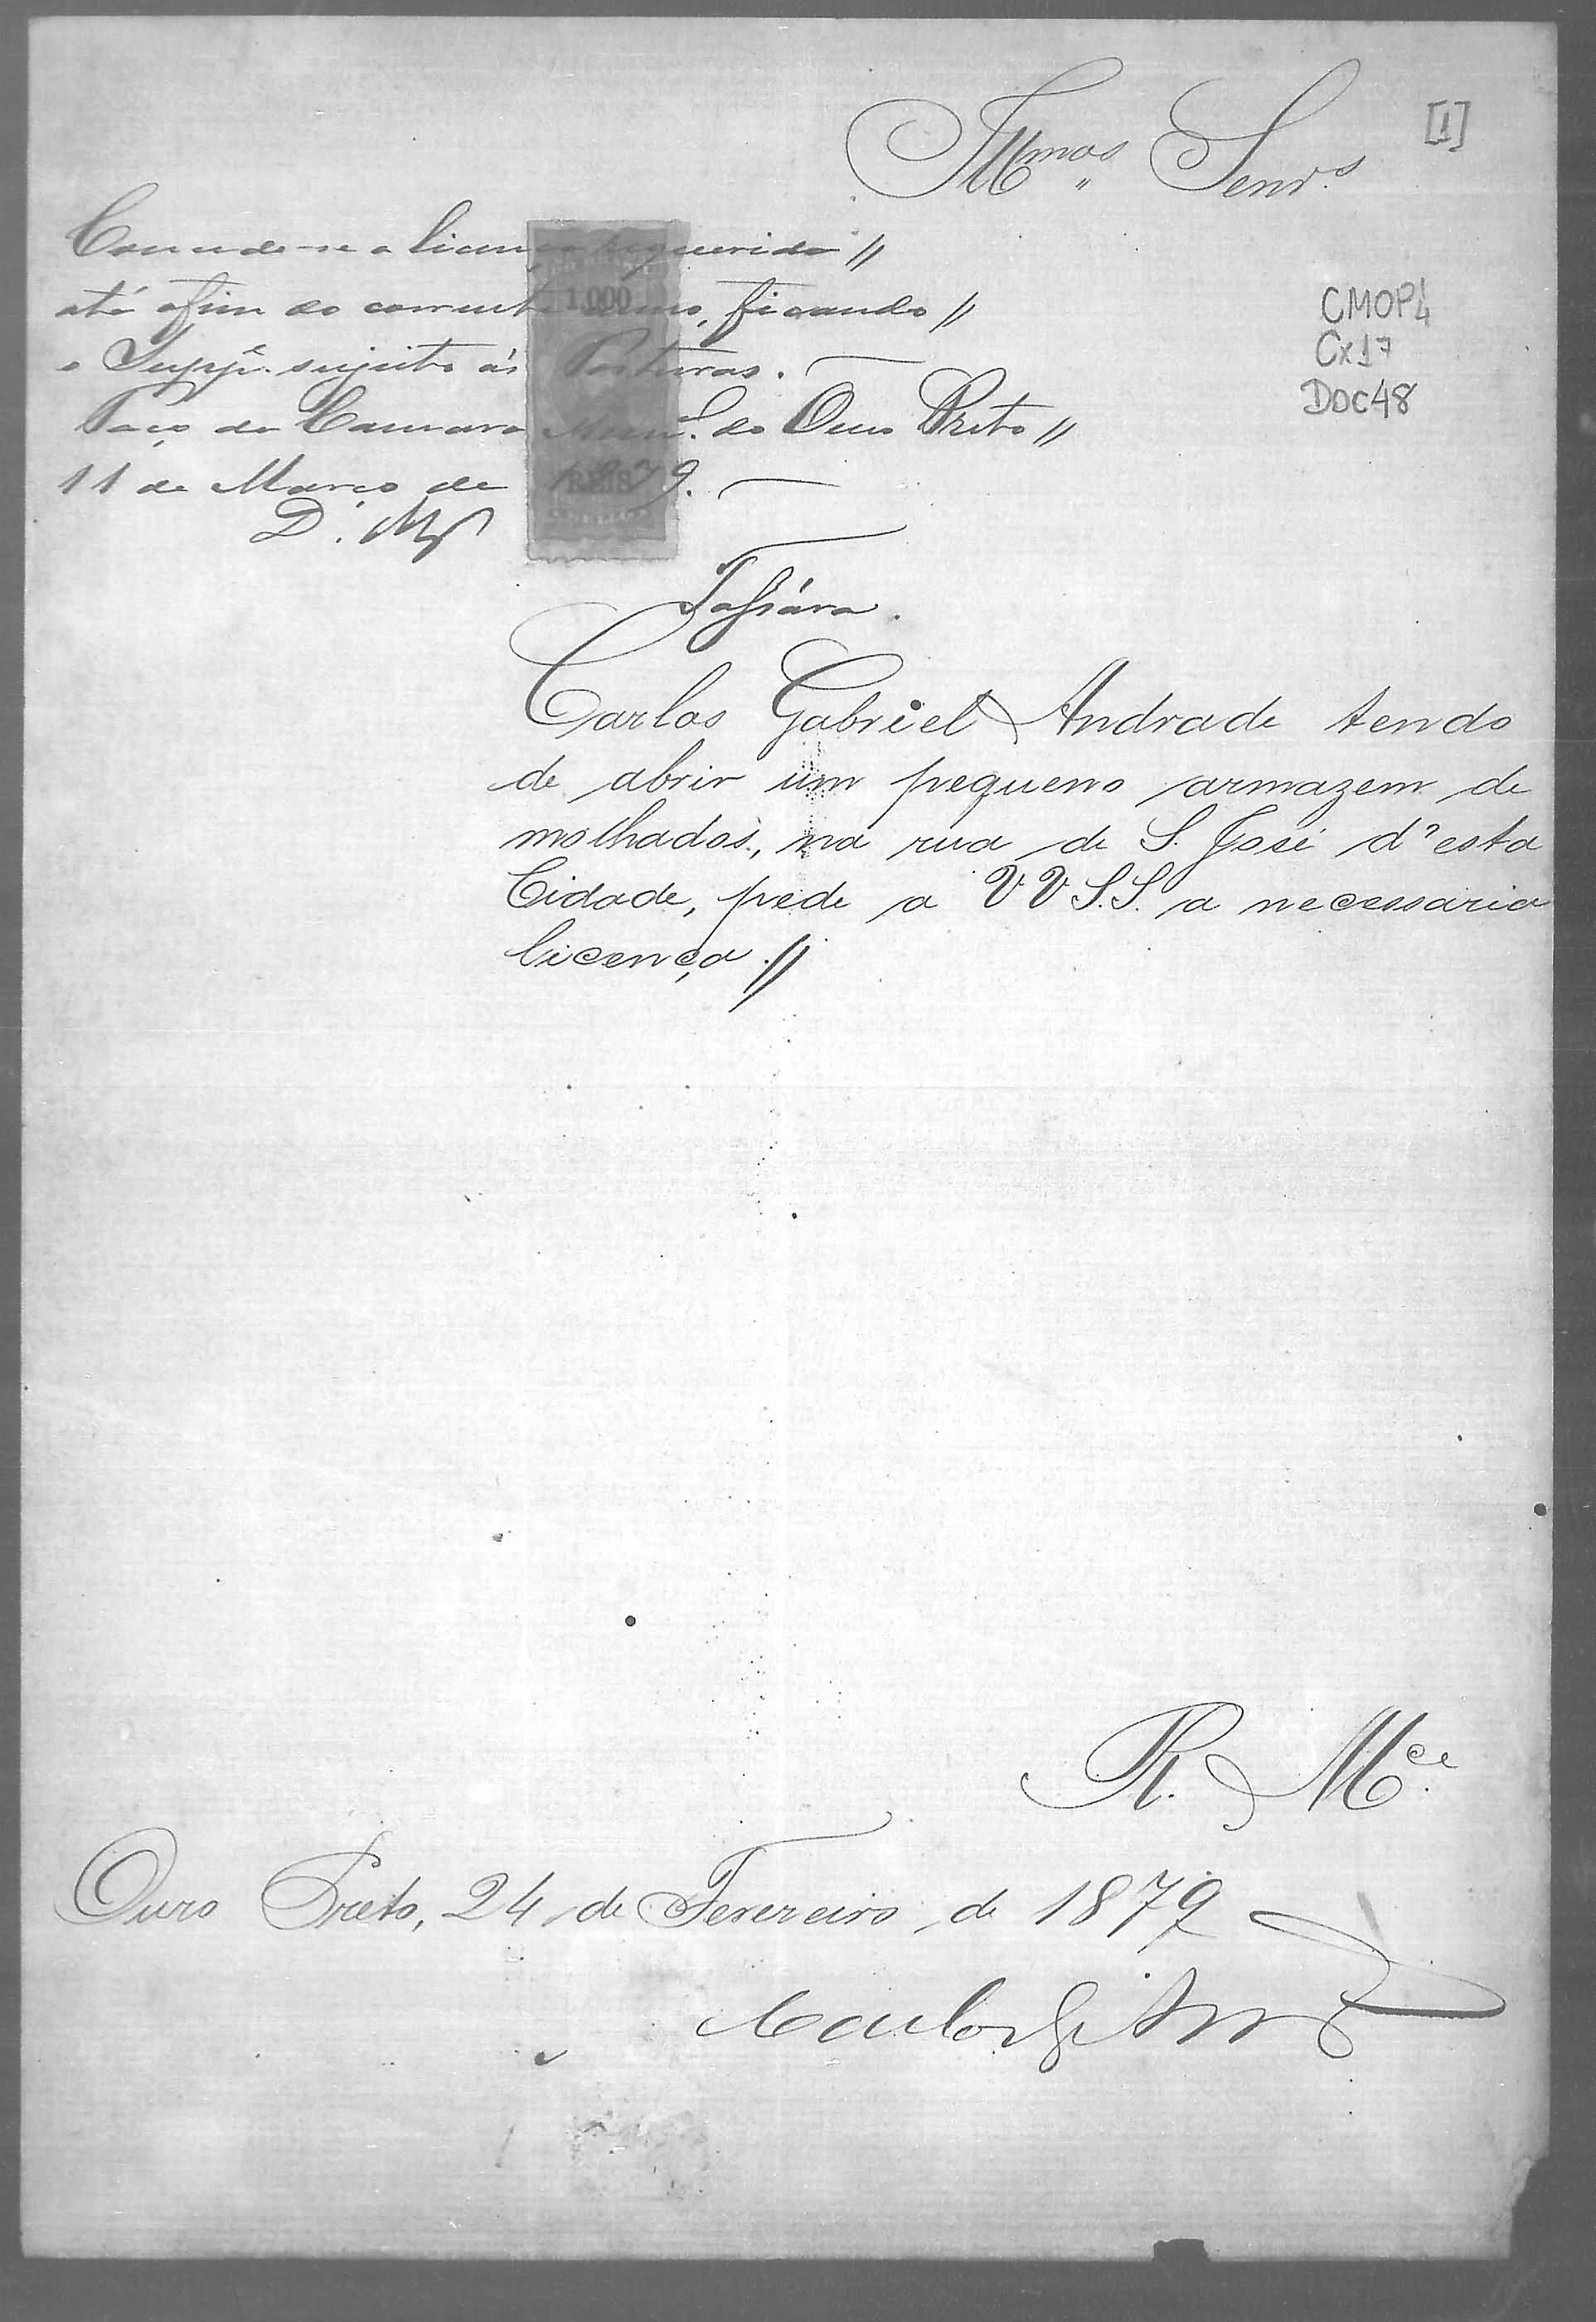 Illmos Senrs
[1]
Concede-se a licença requerida //
até o fim do corrente anno, ficando //
o Suppe. sujeito ás Posturas. —
Paço da Camara Munal. do Ouro Preto //
11 de Março de 1879. —
1.000
REIS
CMOP4
Cx17
DOC48
Carlos Gabriel Andrade tendo
de abrir um pequeno armazem de
molhados, na rua de S. José d'esta
Cidade, pede a VV S.S. a necessaria
licença. //
R. Mce.
Ouro Preto, 24 de Fevereiro de 1879
Carlos G. And